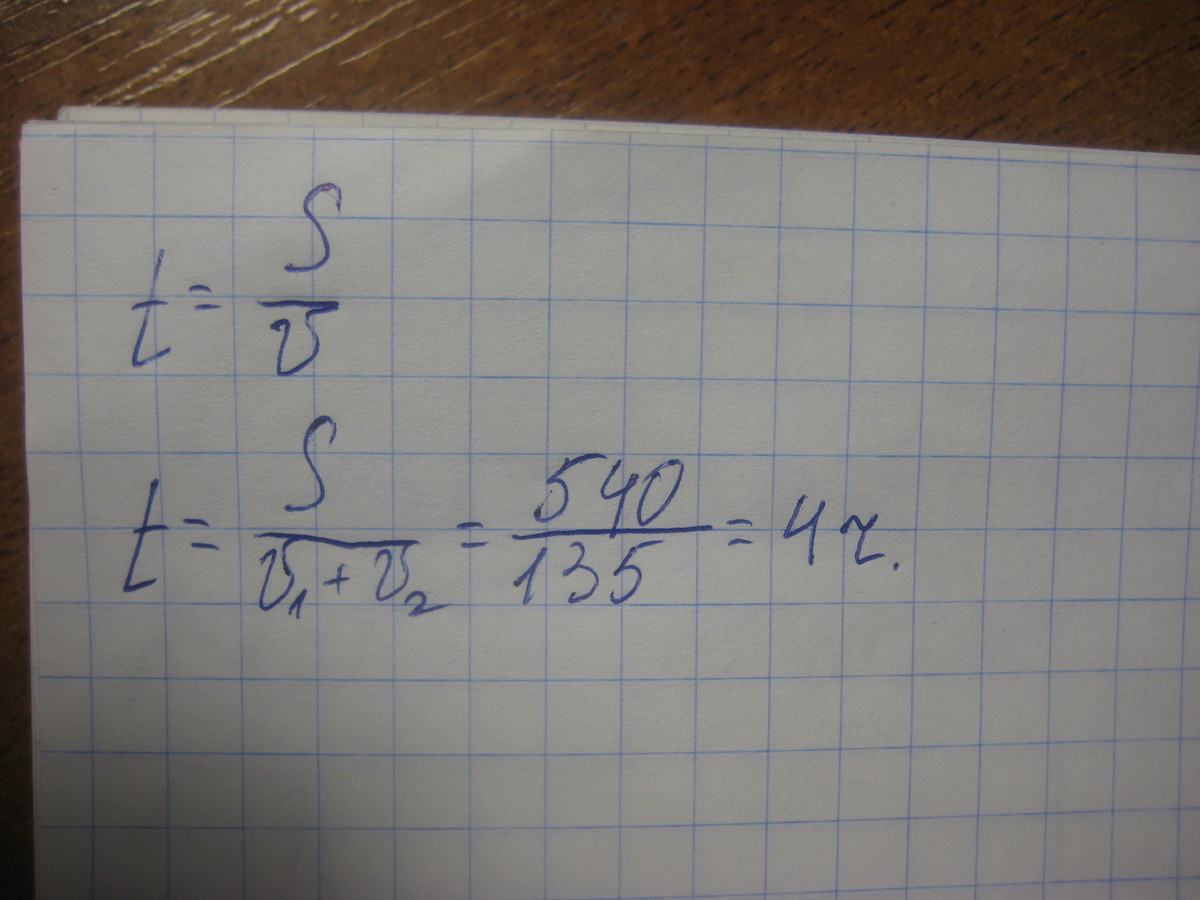 t = S/v
t = S/(v₁ + v₂) = 540/135 = 4 ч.